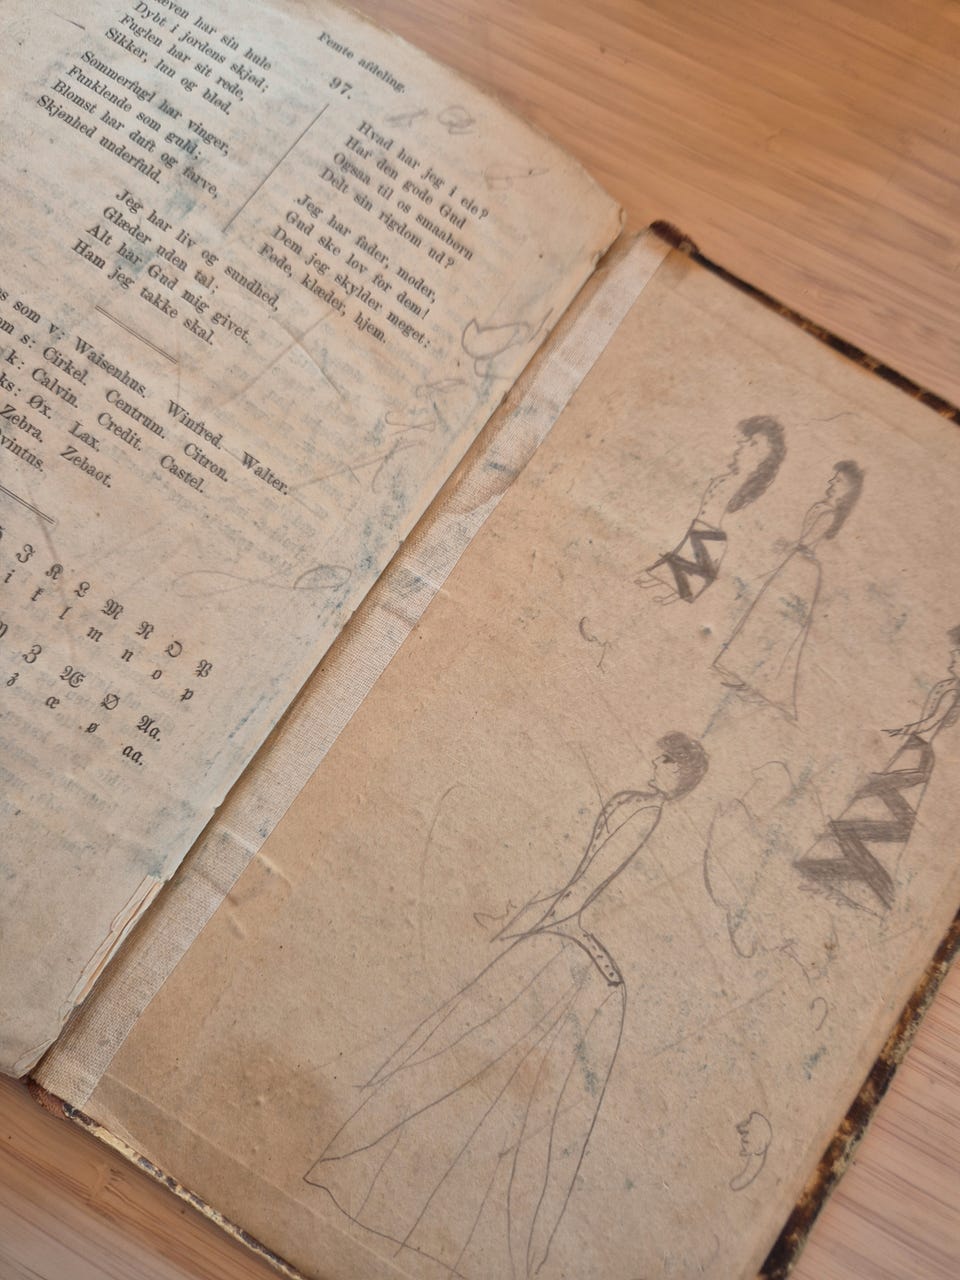 Ræven har sin hule
Dybt i jordens skjød;
Fuglen har sit rede,
Sikker, lun og blød.
Sommerfugl har vinger,
Funklende som guld;
Blomst har duft og farve,
Skjønhed underfuld.
Jeg har liv og sundhed,
Glæder uden tal;
Alt har Gud mig givet.
Ham jeg takke skal.
Femte afdeling.
97.
Hvad har jeg i eie?
Har den gode Gud
Ogsaa til os smaabørn
Delt sin rigdom ud?
Jeg har fader, moder,
Gud ske lov for dem!
Dem jeg skylder meget:
Føde, klæder, hjem.
som v: Waisenhus. Winfred. Walter.
s: Cirkel. Centrum. Citron.
k: Calvin. Credit. Castel.
ks: Øx. Lax.
Zebra. Zebaot.
J K L M N O P
i k l m n o p
Z Æ Ø Aa.
z æ ø aa.